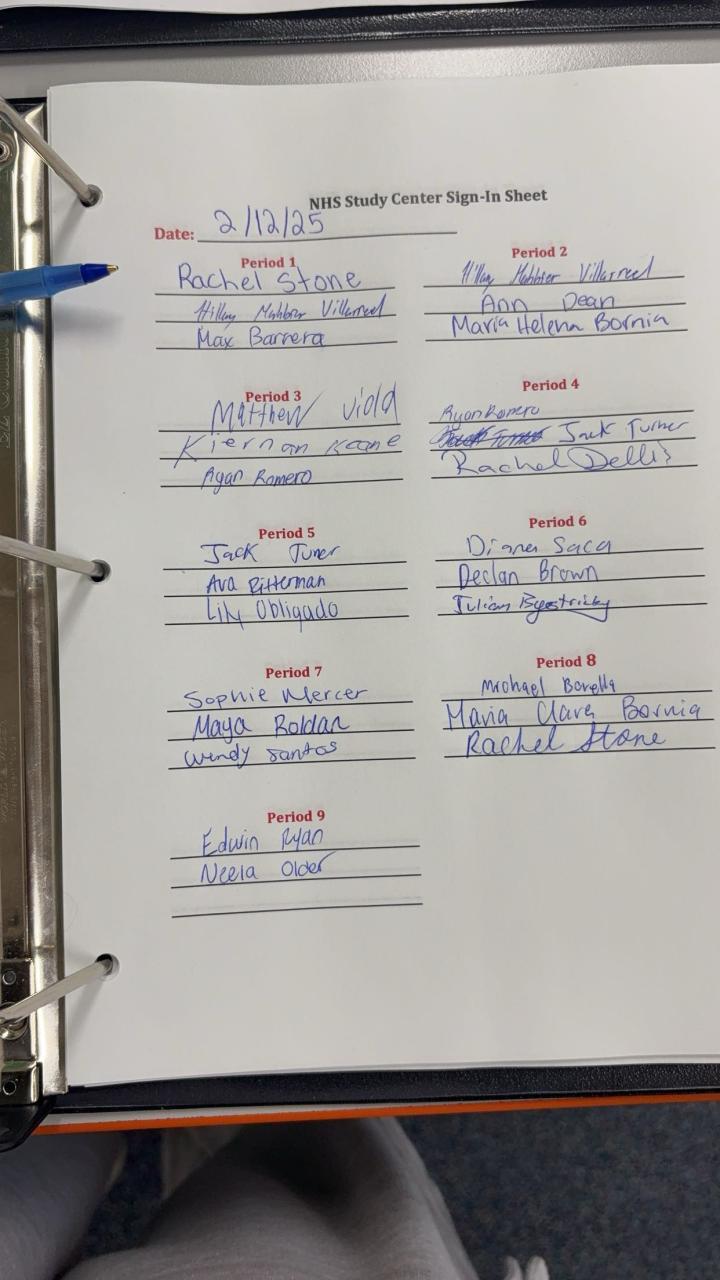 NHS Study Center Sign-In Sheet
Date: 2/12/25
Period 1
Rachel Stone
Hillary Villarreal
Max Barrera
Period 2
Villarreal
Ann Dean
Maria Helena Bornia
Period 3
Matthew Viola
Kiernan Keane
Ryan Romero
Period 4
Ryan Romero
Jack Turner
Rachel Dellis
Period 5
Jack Turer
Ava Ritterman
Lily Obligado
Period 6
Diana Saca
Declan Brown
Julian Byestricky
Period 7
Sophie Mercer
Maya Roldan
Wendy Santos
Period 8
Michael Borella
Maria Clara Bornia
Rachel Stone
Period 9
Edwin Ryan
Neela Older